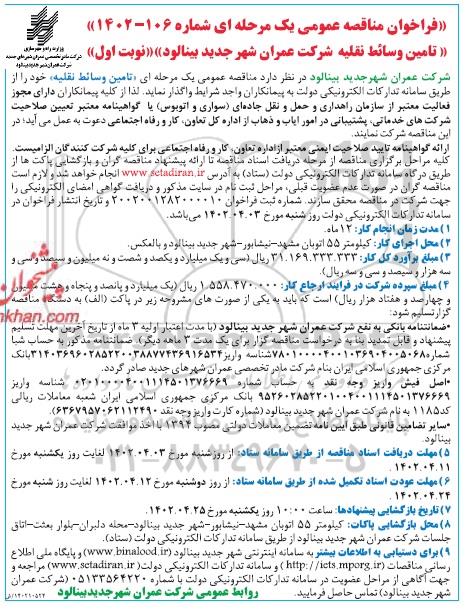 وزارت راه و شهرسازی
شرکت عمران شهر جدید بینالود
«فراخوان مناقصه عمومی یک مرحله ای شماره ۱۰۶-۱۴۰۲»
« تامین وسائط نقلیه شرکت عمران شهر جدید بینالود»«نوبت اول»
شرکت عمران شهرجدید بینالود در نظر دارد مناقصه عمومی یک مرحله ای «تامین وسائط نقلیه» خود را از
طریق سامانه تدارکات الکترونیکی دولت به پیمانکاران واجد شرایط واگذار نماید. لذا از کلیه پیمانکاران دارای مجوز
فعالیت معتبر از سازمان راهداری و حمل و نقل جاده‌ای (سواری و اتوبوس) یا گواهینامه معتبر تعیین صلاحیت
شرکت های خدماتی، پشتیبانی در امور ایاب و ذهاب از اداره کل تعاون، کار و رفاه اجتماعی دعوت به عمل می آید؛ در
این مناقصه شرکت نمایند.
ارائه گواهینامه تایید صلاحیت ایمنی معتبر ازاداره تعاون، کار و رفاه اجتماعی برای کلیه شرکت کنندگان الزامیست.
کلیه مراحل برگزاری مناقصه از مرحله دریافت اسناد مناقصه تا ارائه پیشنهاد مناقصه گران و بازگشایی پاکت ها از
طریق درگاه سامانه تدارکات الکترونیکی دولت (ستاد) به آدرس www.setadiran.ir انجام خواهد شد و لازم است
مناقصه گران در صورت عدم عضویت قبلی، مراحل ثبت نام در سایت مذکور و دریافت گواهی امضای الکترونیکی را
جهت شرکت در مناقصه محقق سازند. شماره ثبت فراخوان ۲۰۰۲۰۰۱۲۸۲۰۰۰۰۱۰ و تاریخ انتشار فراخوان در
سامانه تدارکات الکترونیکی دولت روز شنبه مورخ ۱۴۰۲.۰۴.۰۳ می‌باشد.
۱) مدت زمان انجام کار: ۱۲ماه.
۲) محل اجرای کار: کیلومتر ۵۵ اتوبان مشهد-نیشابور-شهر جدید بینالود و بالعکس.
۳) مبلغ برآورد کل کار: ۳۱.۱۶۹.۳۳۳.۳۳۳ ریال (سی و یک میلیارد و یکصد و شصت و نه میلیون و سیصد و سی و
سه هزار و سیصد و سی و سه ریال).
۴) مبلغ سپرده شرکت در فرایند ارجاع کار: ۱.۵۵۸.۴۷۰.۰۰۰ ریال (یک میلیارد و پانصد و پنجاه و هشت میلیون
و چهارصد و هفتاد هزار ریال) است که باید به یکی از صورت های مشروحه زیر در پاکت (الف) به دستگاه مناقصه
گزارتسلیم شود:
*ضمانتنامه بانکی به نفع شرکت عمران شهر جدید بینالود (با مدت اعتبار اولیه ۳ ماه از تاریخ آخرین مهلت تسلیم
پیشنهاد و قابل تمدید بنا به درخواست مناقصه گزار برای یک مدت ۳ ماهه دیگر). ضمانتنامه مذکور به حساب شبا
مرکزی جمهوری اسلامی ایران بنام شرکت مادر تخصصی عمران شهرهای جدید صادر گردد.
*اصل فیش واریز وجه نقد به حساب شماره
بانک مرکزی جمهوری اسلامی ایران شعبه معاملات ریالی
کد۱۱۸۵ به نام شرکت عمران شهر جدید بینالود (شماره کارت واریز وجه نقد ۶۳۶۷۹۵۷۰۶۲۱۱۲۴۹۰)
*سایر تضامین قانونی طبق آیین نامه تضمین معاملات دولتی مصوب ۱۳۹۴ با اخذ موافقت شرکت عمران شهر جدید
بینالود.
۵) مهلت دریافت اسناد مناقصه از طریق سامانه ستاد: از روز شنبه مورخ ۱۴۰۲.۰۴.۰۳ لغایت روز یکشنبه مورخ
۱۴۰۲.۰۴.۱۱ .
۶) مهلت عودت اسناد تکمیل شده از طریق سامانه ستاد: از روز دوشنبه مورخ ۱۴۰۲.۰۴.۱۲ لغایت روز شنبه مورخ
۱۴۰۲.۰۴.۲۴
۷) تاریخ بازگشایی پیشنهادها: ساعت ۱۰:۰۰ روز یکشنبه مورخ ۱۴۰۲.۰۴.۲۵
۸) محل بازگشایی پاکات: کیلومتر ۵۵ اتوبان مشهد-نیشابور-شهر جدید بینالود-محله دلبران-بلوار بعثت-اتاق
جلسات شرکت عمران شهر جدید بینالود از طریق سامانه تدارکات الکترونیکی دولت (ستاد).
۹) برای دستیابی به اطلاعات بیشتر به سامانه اینترنتی شهر جدید بینالود (www.binalood.ir) و پایگاه ملی اطلاع
رسانی مناقصات (http://iets.mporg.ir) و سامانه تدارکات الکترونیکی دولت (www.setadiran.ir) مراجعه و
جهت آگاهی از مراحل عضویت در سامانه تدارکات الکترونیکی دولت با شماره ۰۵۱۳۳۵۶۴۲۲۰ (شرکت عمران شهر
جدید بینالود) تماس حاصل فرمایید.
روابط عمومی شرکت عمران شهرجدیدبینالود
۱۴۰۲۱۰۵۲۴/ق
۰۲۱-۸۸۳۴۹۶۷۰-۵